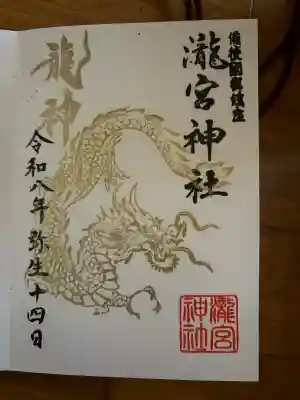 備後國鎮鎮座
瀧宮神社
龍神
令和八年弥生十四日
瀧宮
神社